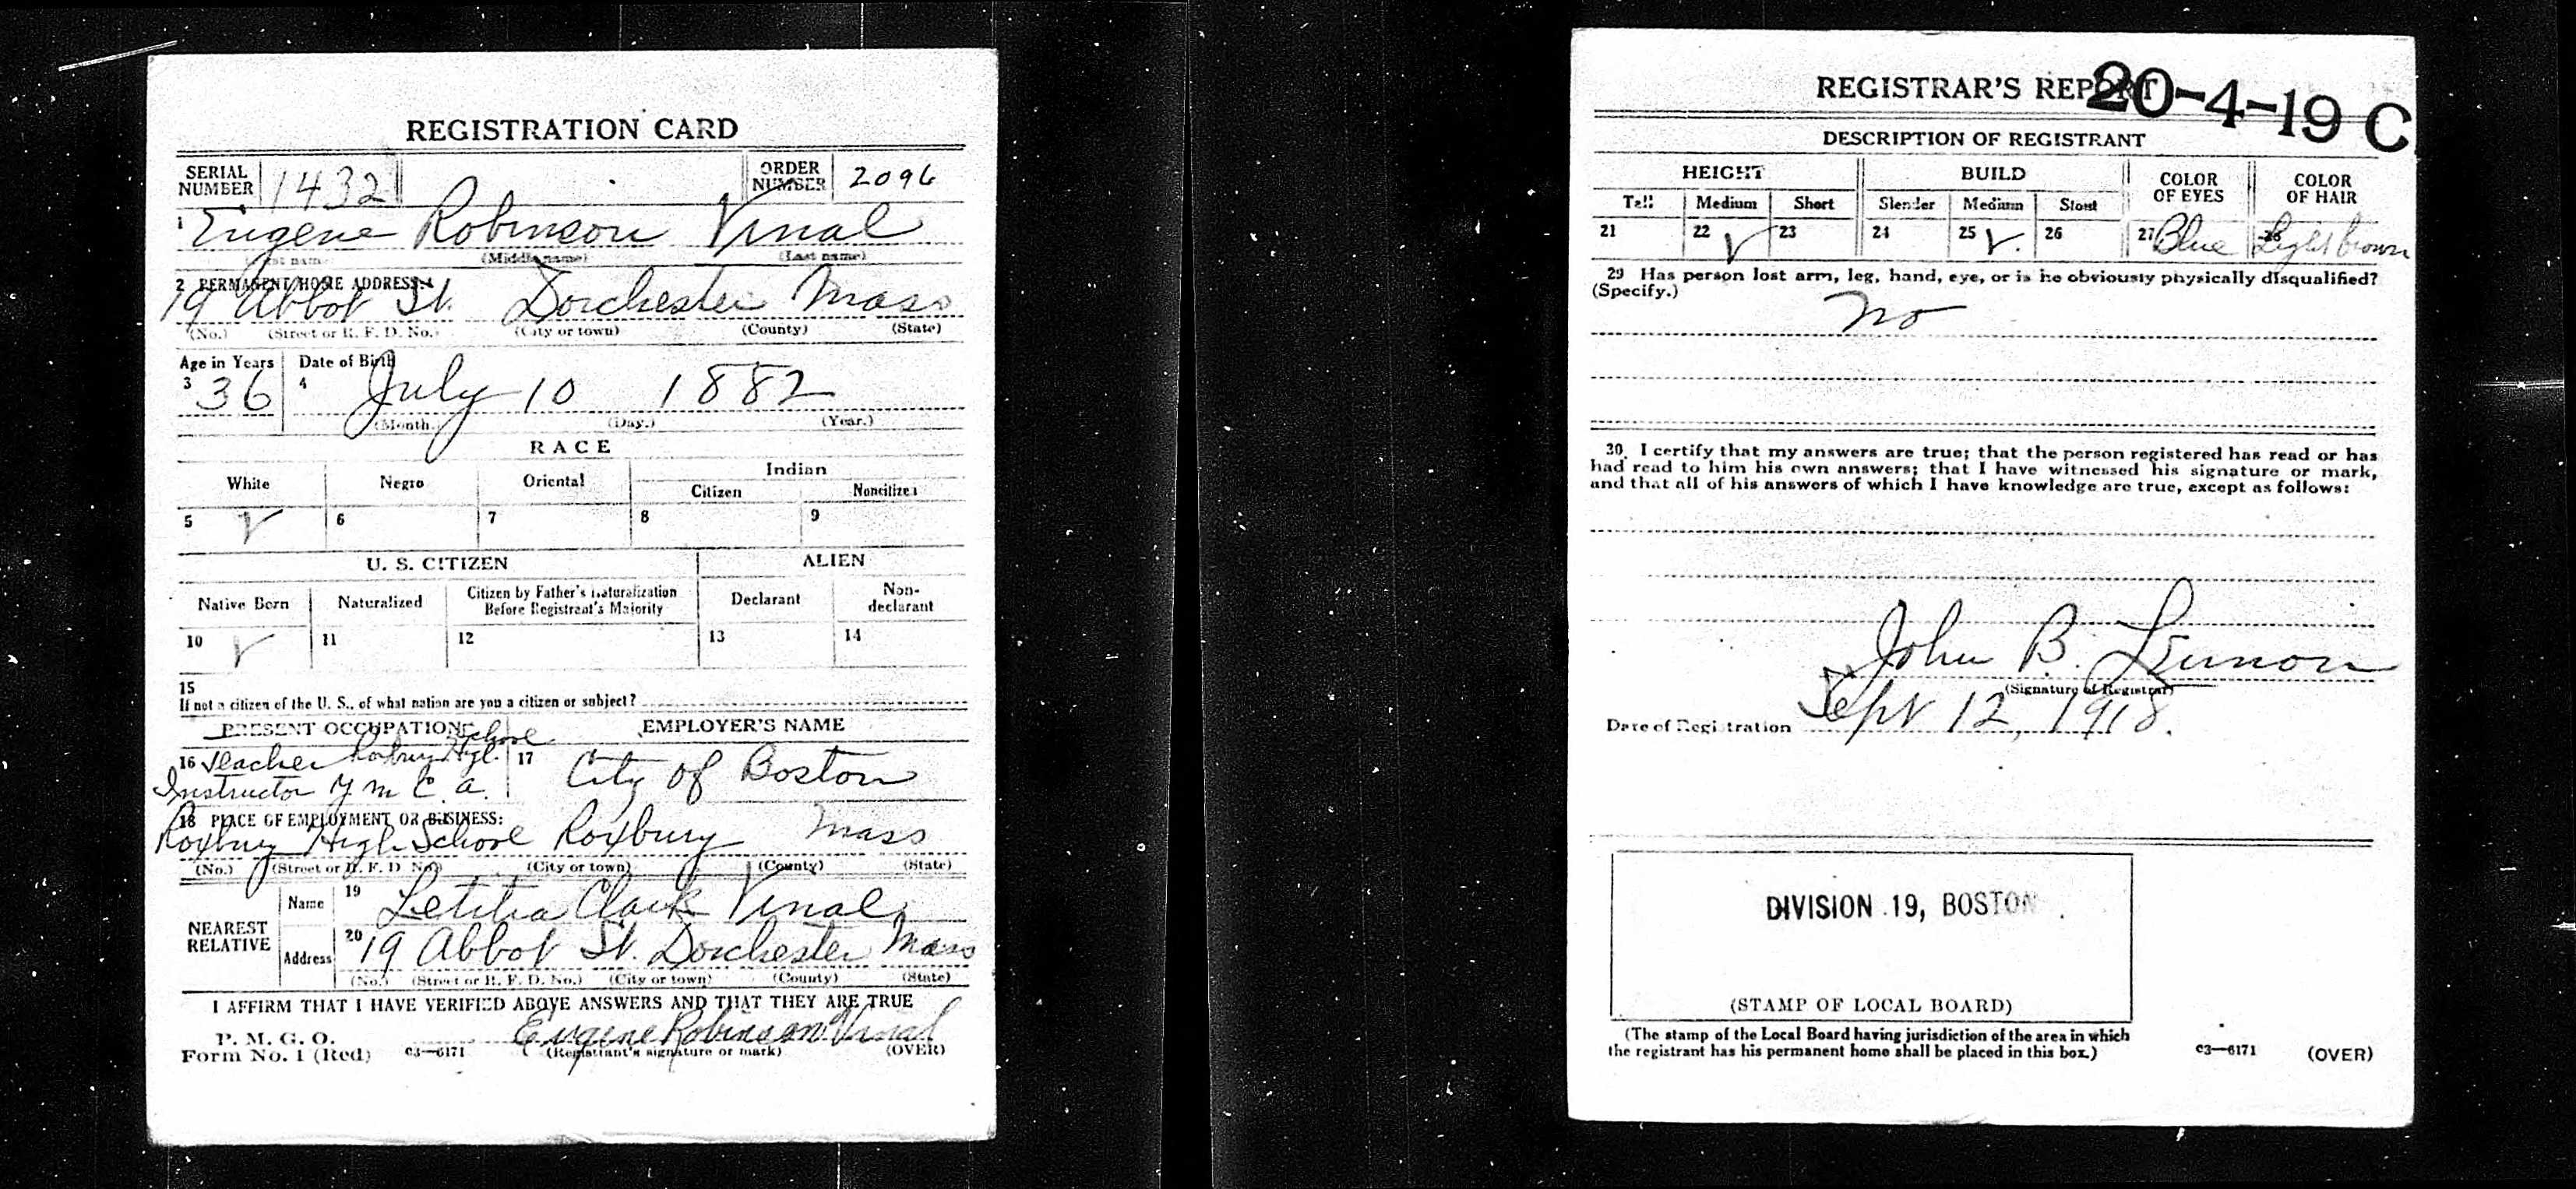 REGISTRATION CARD
SERIAL NUMBER 1432 ORDER NUMBER 2096
1 Eugene Robinson Vinal
(First name) (Middle name) (Last name)
2 PERMANENT HOME ADDRESS:
19 Abbot St. Dorchester Mass
(No.) (Street or R. F. D. No.) (City or town) (County) (State)
Age in Years Date of Birth
3 36 4 July 10 1882
(Month.) (Day.) (Year.)
RACE
White Negro Oriental Indian
Citizen Noncitizen
5 ✓ 6 7 8 9
U. S. CITIZEN ALIEN
Native Born Naturalized Citizen by Father's Naturalization Before Registrant's Majority Declarant Non-declarant
10 ✓ 11 12 13 14
15
If not a citizen of the U. S., of what nation are you a citizen or subject?
PRESENT OCCUPATION EMPLOYER'S NAME
16 Teacher Roxbury High School 17 City of Boston
Instructor Y M C. A.
18 PLACE OF EMPLOYMENT OR BUSINESS:
Roxbury High School Roxbury Mass
(No.) (Street or R. F. D. No.) (City or town) (County) (State)
NEAREST RELATIVE
Name 19 Letitia Clark Vinal
Address 20 19 Abbot St. Dorchester Mass
(No.) (Street or R. F. D. No.) (City or town) (County) (State)
I AFFIRM THAT I HAVE VERIFIED ABOVE ANSWERS AND THAT THEY ARE TRUE
P. M. G. O.
Form No. 1 (Red) c3—6171 Eugene Robinson Vinal
(Registrant's signature or mark) (OVER)
REGISTRAR'S REPORT
20-4-19 C
DESCRIPTION OF REGISTRANT
HEIGHT BUILD COLOR OF EYES COLOR OF HAIR
Tall Medium Short Slender Medium Stout
21 22 ✓ 23 24 25 ✓ 26 27 Blue 28 Light brown
29 Has person lost arm, leg, hand, eye, or is he obviously physically disqualified?
(Specify.) no
30. I certify that my answers are true; that the person registered has read or has
had read to him his own answers; that I have witnessed his signature or mark,
and that all of his answers of which I have knowledge are true, except as follows:
John B. Lennon
(Signature of Registrar)
Date of Registration Sept 12, 1918.
DIVISION 19, BOSTON
(STAMP OF LOCAL BOARD)
(The stamp of the Local Board having jurisdiction of the area in which
the registrant has his permanent home shall be placed in this box.)
c3—6171 (OVER)